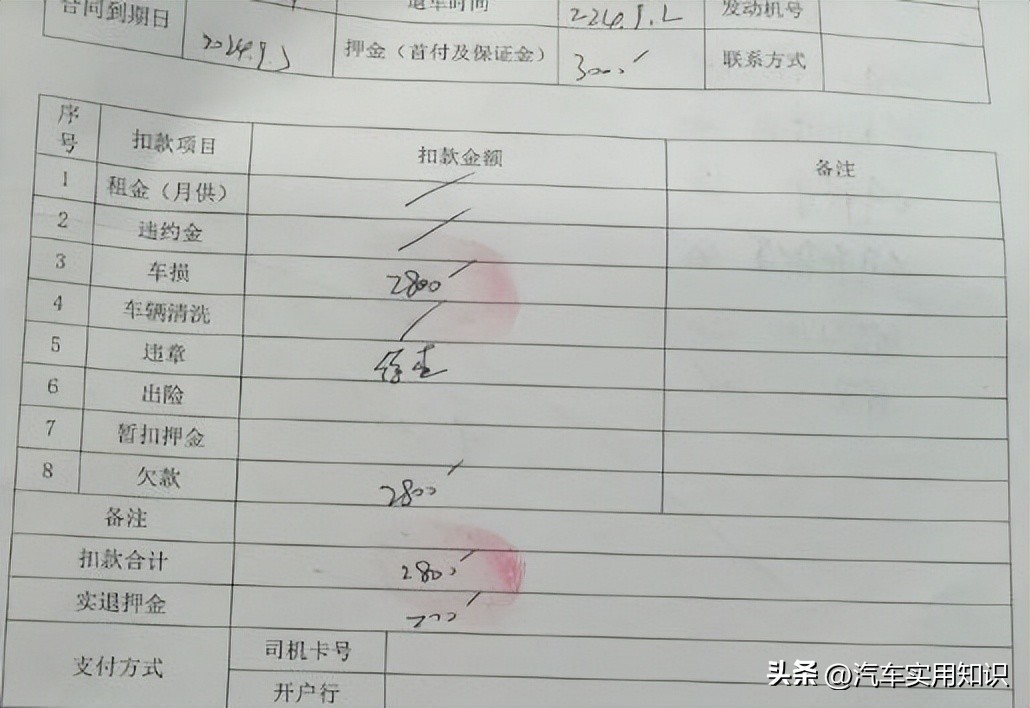 合同到期日 退车时间 发动机号
押金（首付及保证金） 3000 联系方式
序号 扣款项目 扣款金额 备注
1 租金（月供）
2 违约金
3 车损 2800
4 车辆清洗
5 违章
6 出险
7 暂扣押金
8 欠款 2800
备注
扣款合计 2800
实退押金
支付方式 司机卡号
开户行
头条 @汽车实用知识